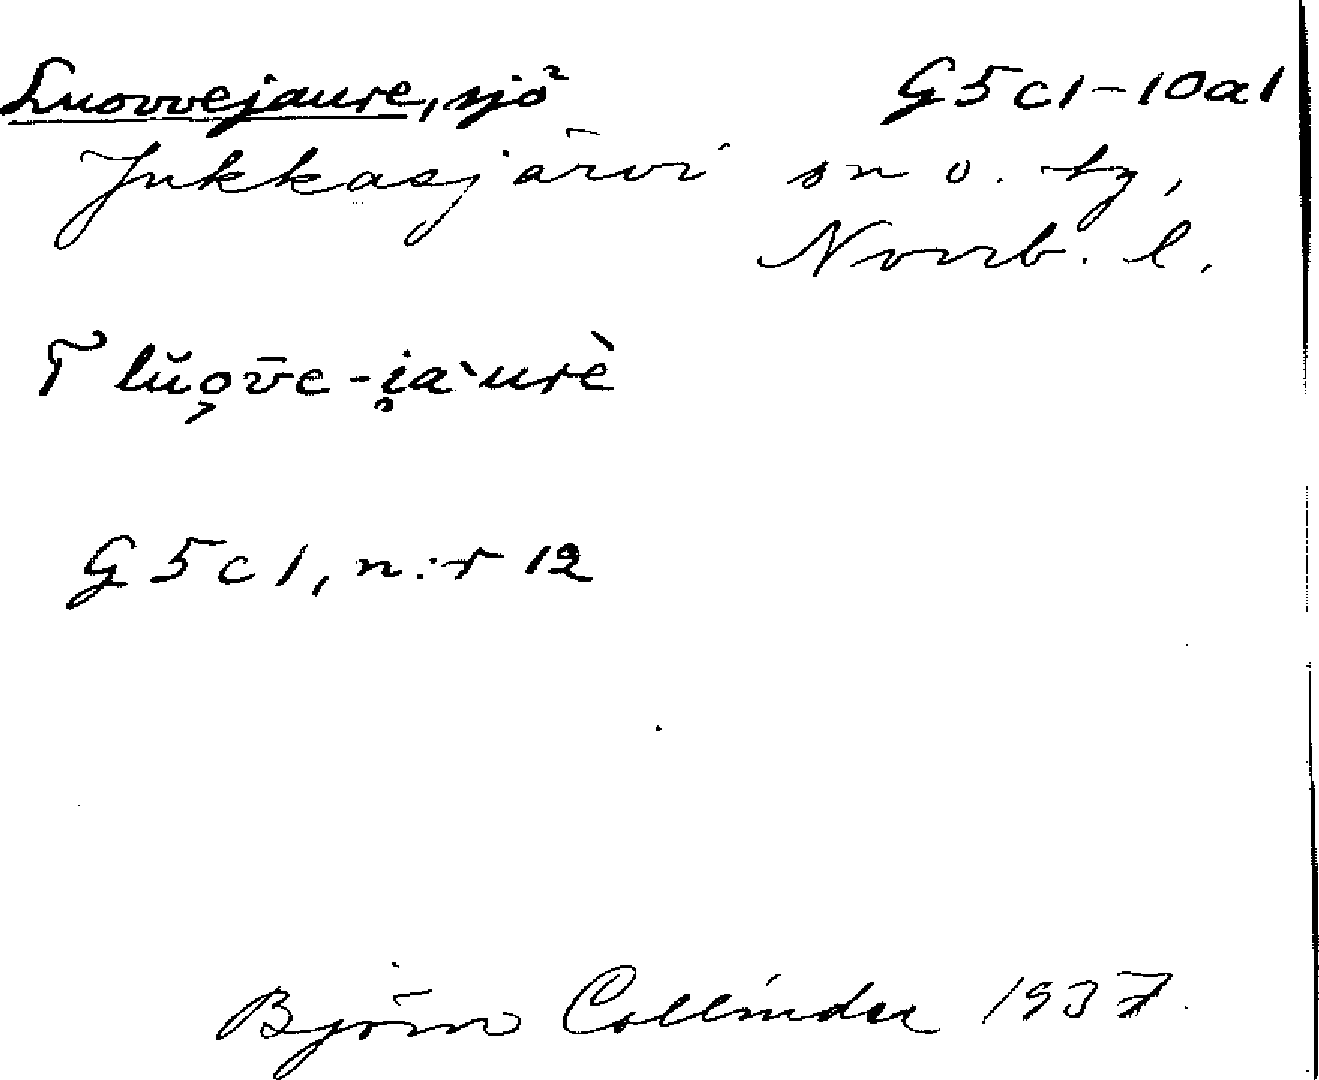 Luovvejaure, sjö G5c1-10a1
Jukkasjärvi sn o. tg,
Norrb. l.
T lŭo̧v̄e-i̯a`urè
G5c1, n:r 12
Björn Collinder 1937.